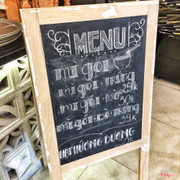 MENU
mì gói
mì gói-trứng 29k
mì gói-bò 30k
mì gói-bò-trứng 39k
HƯƠNG DƯƠNG